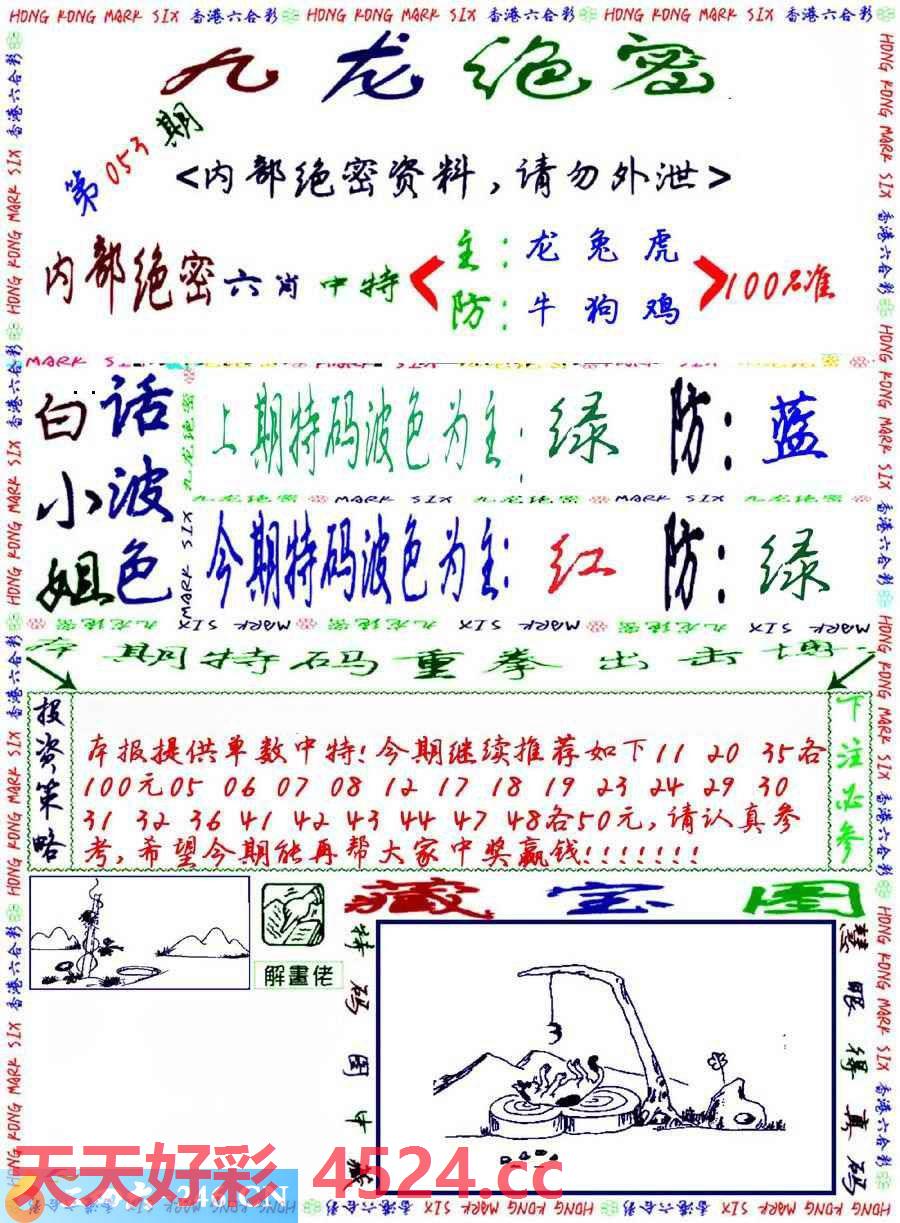 HONG KONG MARK SIX 香港六合彩 HONG KONG MARK SIX 香港六合彩 HONG KONG MARK SIX 香港六合彩
九龙绝密
第053期
<内部绝密资料,请勿外泄>
内部绝密六肖中特
主:龙兔虎
防:牛狗鸡
100%准
白话小姐波色
上期特码波色为主:绿 防:蓝
九龙绝密 MARK SIX 九龙绝密 MARK SIX 九龙绝密
今期特码波色为主:红 防:绿
本期特码重拳出击博
投资策略
本报提供单数中特!今期继续推荐如下11 20 35各
100元05 06 07 08 12 17 18 19 23 24 29 30
31 32 36 41 42 43 44 47 48各50元,请认真参
考,希望今期能再帮大家中奖赢钱!!!!!!!
下注必参
藏宝图
解畫佬
特码图中藏
慧眼得真码
天天好彩 4524.cc